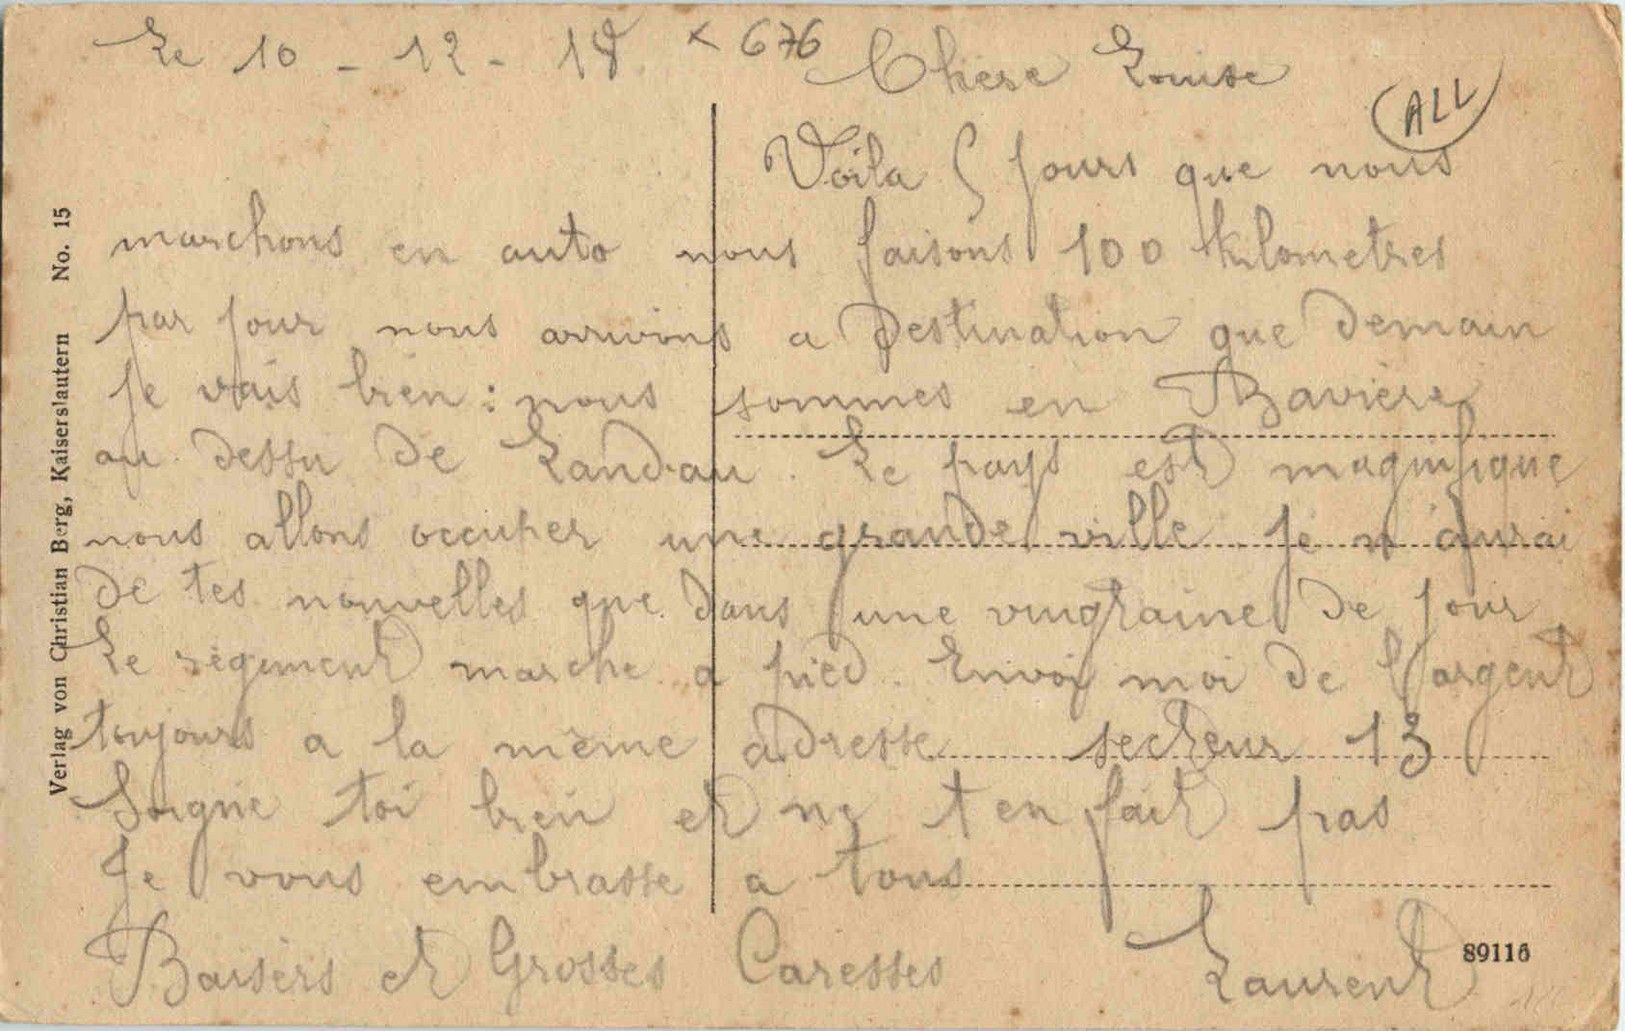 Le 10 - 12 - 18 < 676
Chere Louise
ALL
Voila 5 jours que nous
marchons en auto nous faisons 100 kilometres
par jour nous arrivons a destination que demain
Je vais bien : nous sommes en Bavière
au dessu de Landau. Le pays est magnifique
nous allons occuper une grande ville. Je n'aurai
de tes nouvelles que dans une vingtaine de jour
Le régiment marche a pied. Envoi moi de l'argent
toujours a la même adresse secteur 13
Soigne toi bien et ne t en fait pas
Je vous embrasse a tous
Baisers et Grosses Caresses Laurent
Verlag von Christian Berg, Kaiserslautern No. 15
89116